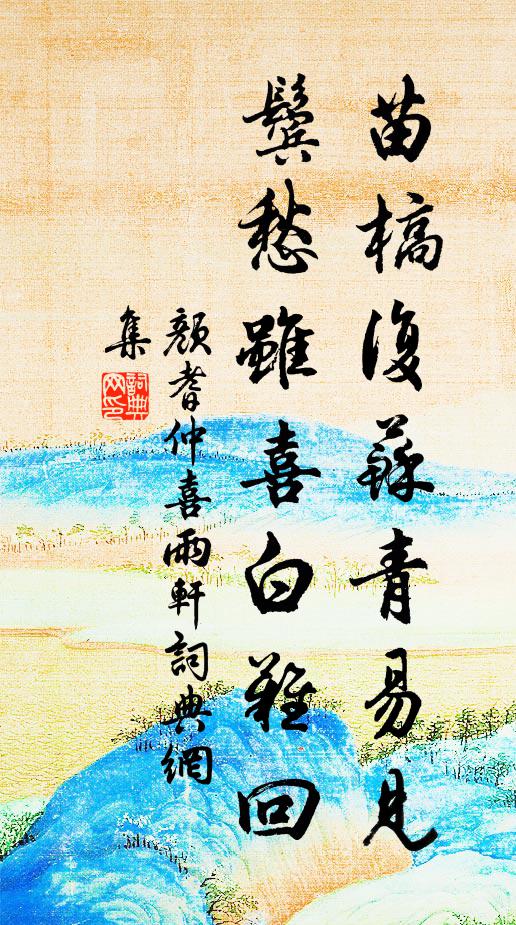 苗槁復蘇青易見
鬢愁雖喜白難回
顏耆仲喜雨軒詞典網
集
詞典
网印